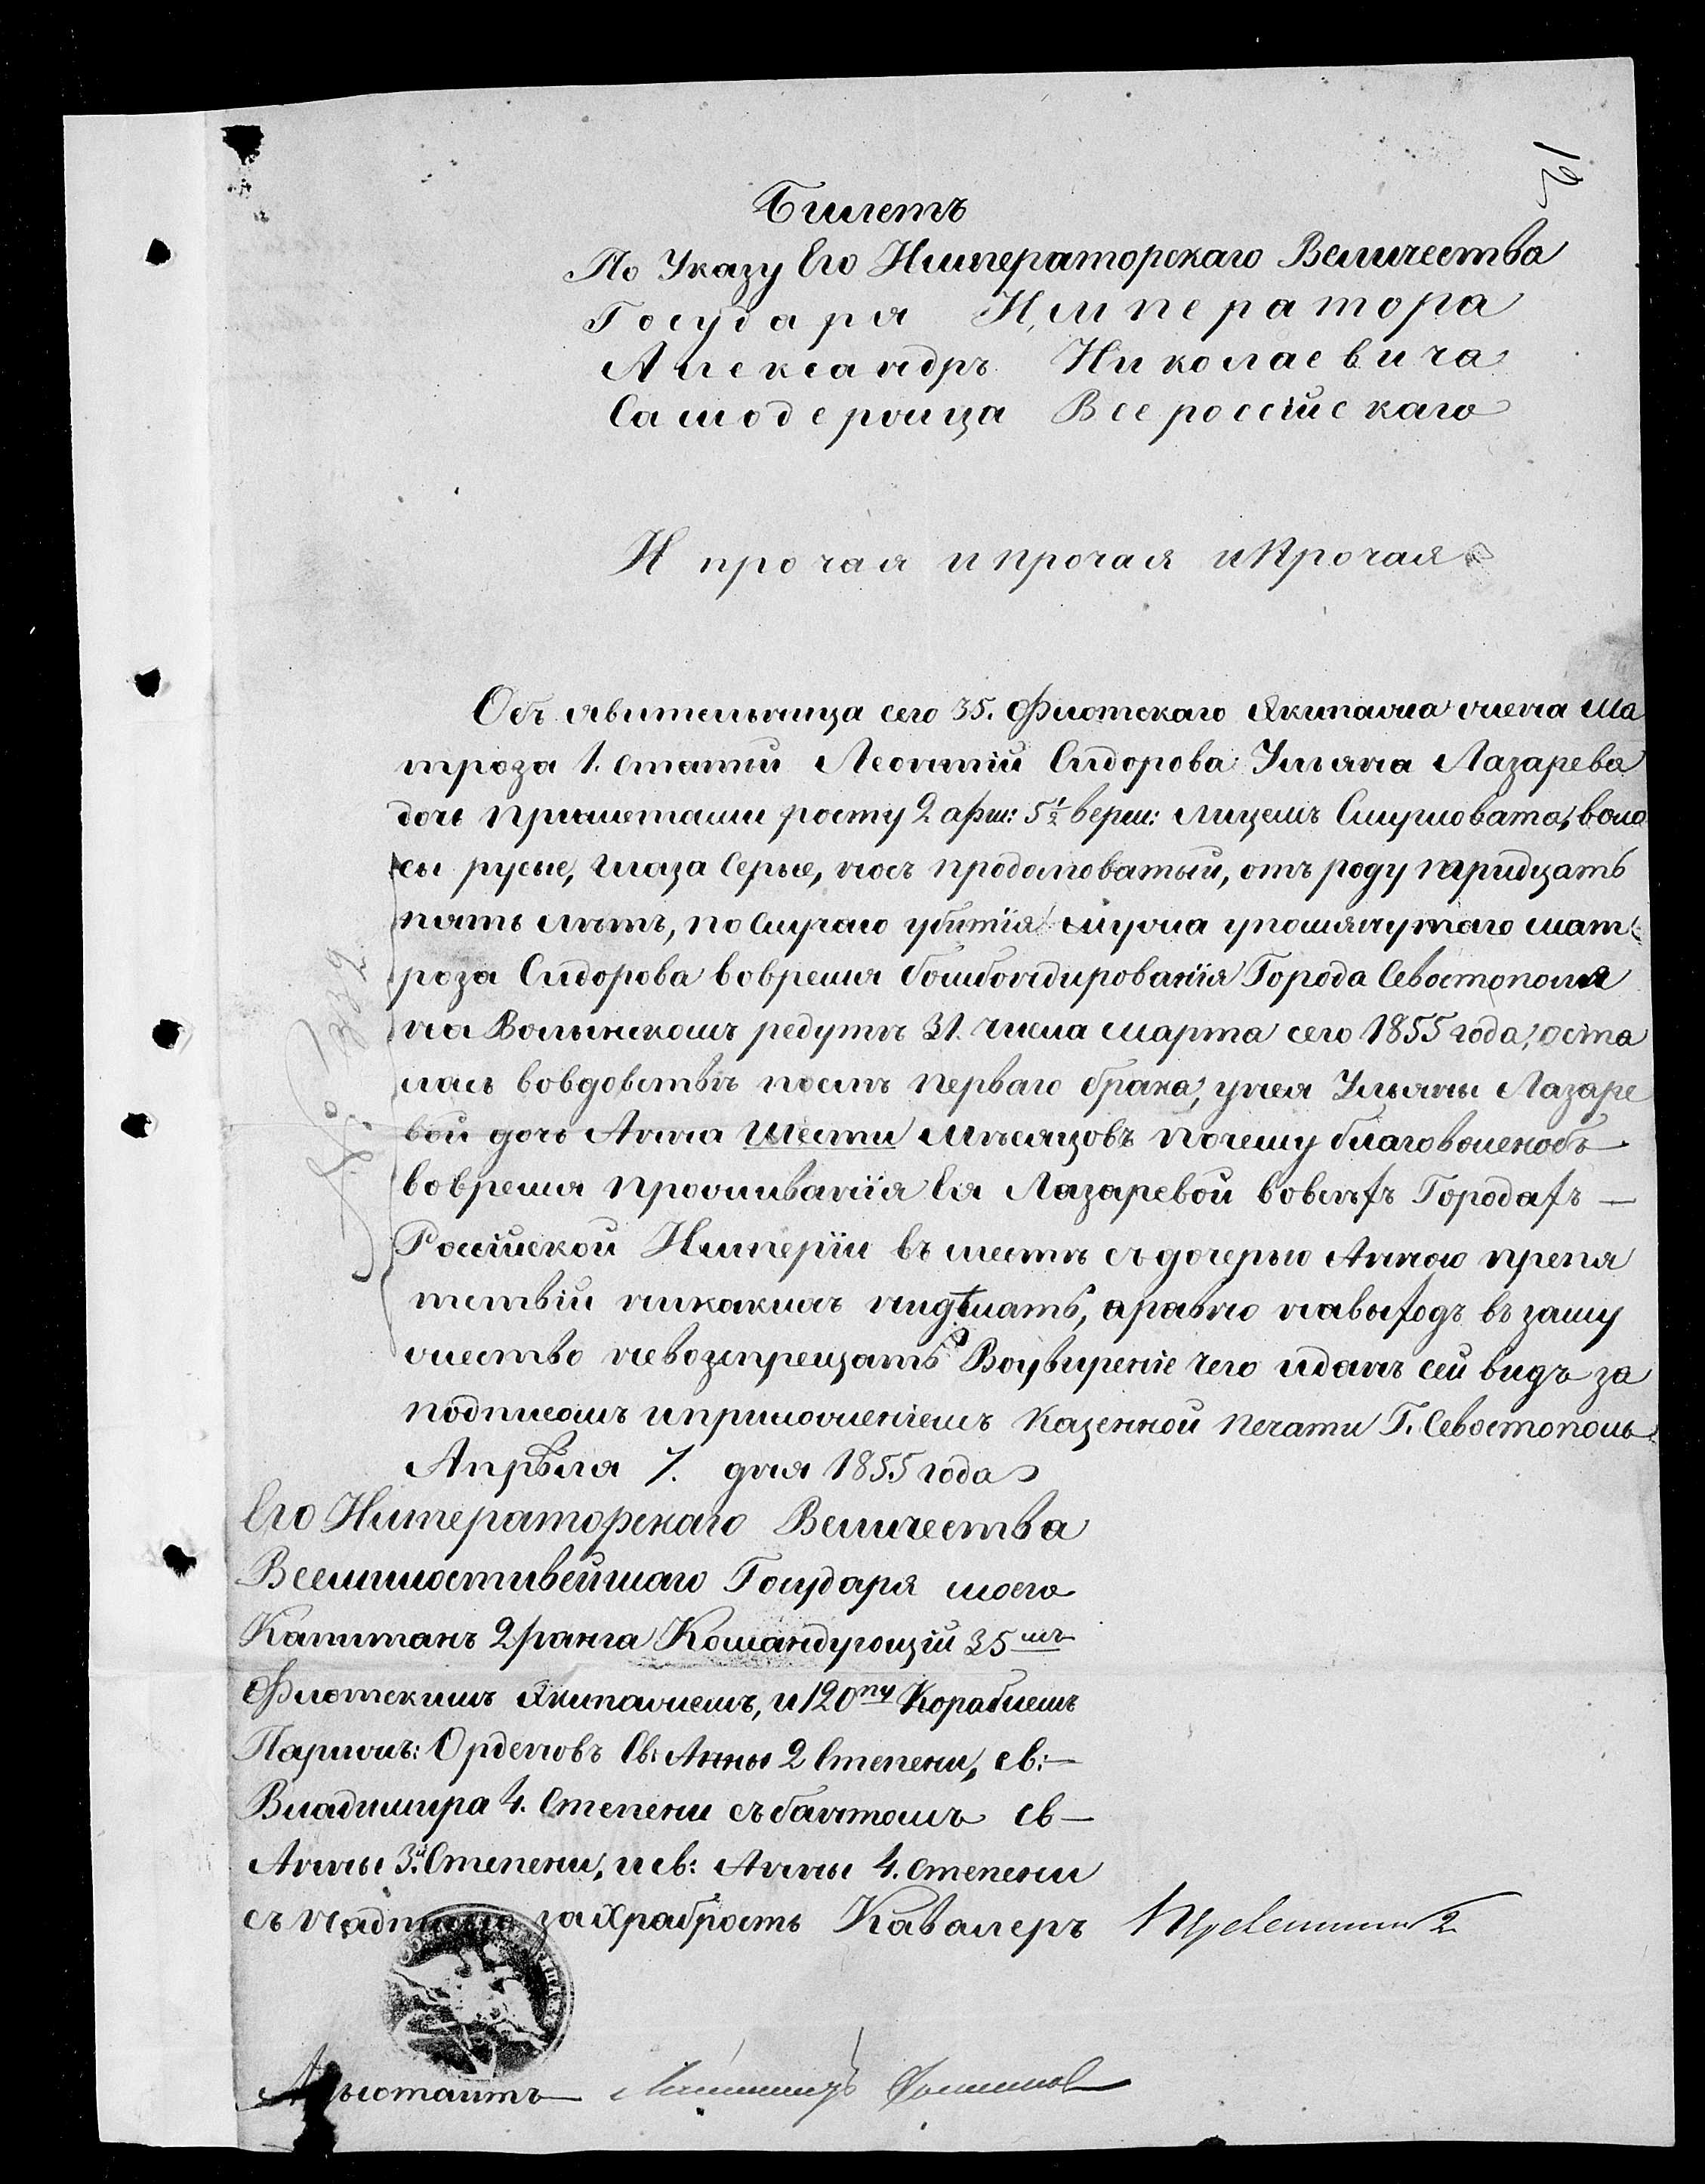 12
Билетъ
По Указу Его Императорскаго Величества
Государя Императора
Александръ Николаевича
Самодержца Всероссійскаго
И прочая и прочая и прочая
Объявительница сего 35. Флотскаго Экипажа жена ма
троза 1. статьи Леонтій Сидорова Ульяна Лазарева
дочь приметами росту 2 арш: 5½ верш: лицемъ Смугловата, воло
сы русые, глаза Серые, носъ продолговатый, отъ роду тридцать
пять лѣтъ, по случаю убитія мужа упомянутаго мат
роза Сидорова вовремя бомбондированія Города Севостополя
на Волынскомъ редутѣ 31. числа марта сего 1855 года, оста
лась вовдовствѣ послѣ перваго брака, унея Ульяны Лазаре
вой дочь Анна шести мѣсяцовъ почему благоволенобъ
вовремя проживанія Ея Лазаревой вовсѣхъ Городахъ —
Россійской Имперіи въ местѣ съ дочерью Анною препя
тствій никакихъ нидѣлать, а равно навыходъ въ заму
жество невозпрещать Воувиреніе чего иданъ сей видъ за
подписомъ иприложеніемъ казенной печати Г. Севостополь
Апрѣля 7. дня 1855 года
Его Императорскаго Величества
Всемилостивейшаго Государя моего
Капитанъ 2 ранга Командующій 35мъ
Флотскимъ Экипажемъ, и 120пу Кораблемъ
Парижъ: Орденовъ Св: Анны 2 Степени, св: —
Владимира 4. Степени съ бантомъ св —
Анны 3й Степени, и св: Анны 4. степени
съ надписью за храбрость Кавалеръ
Адъютантъ